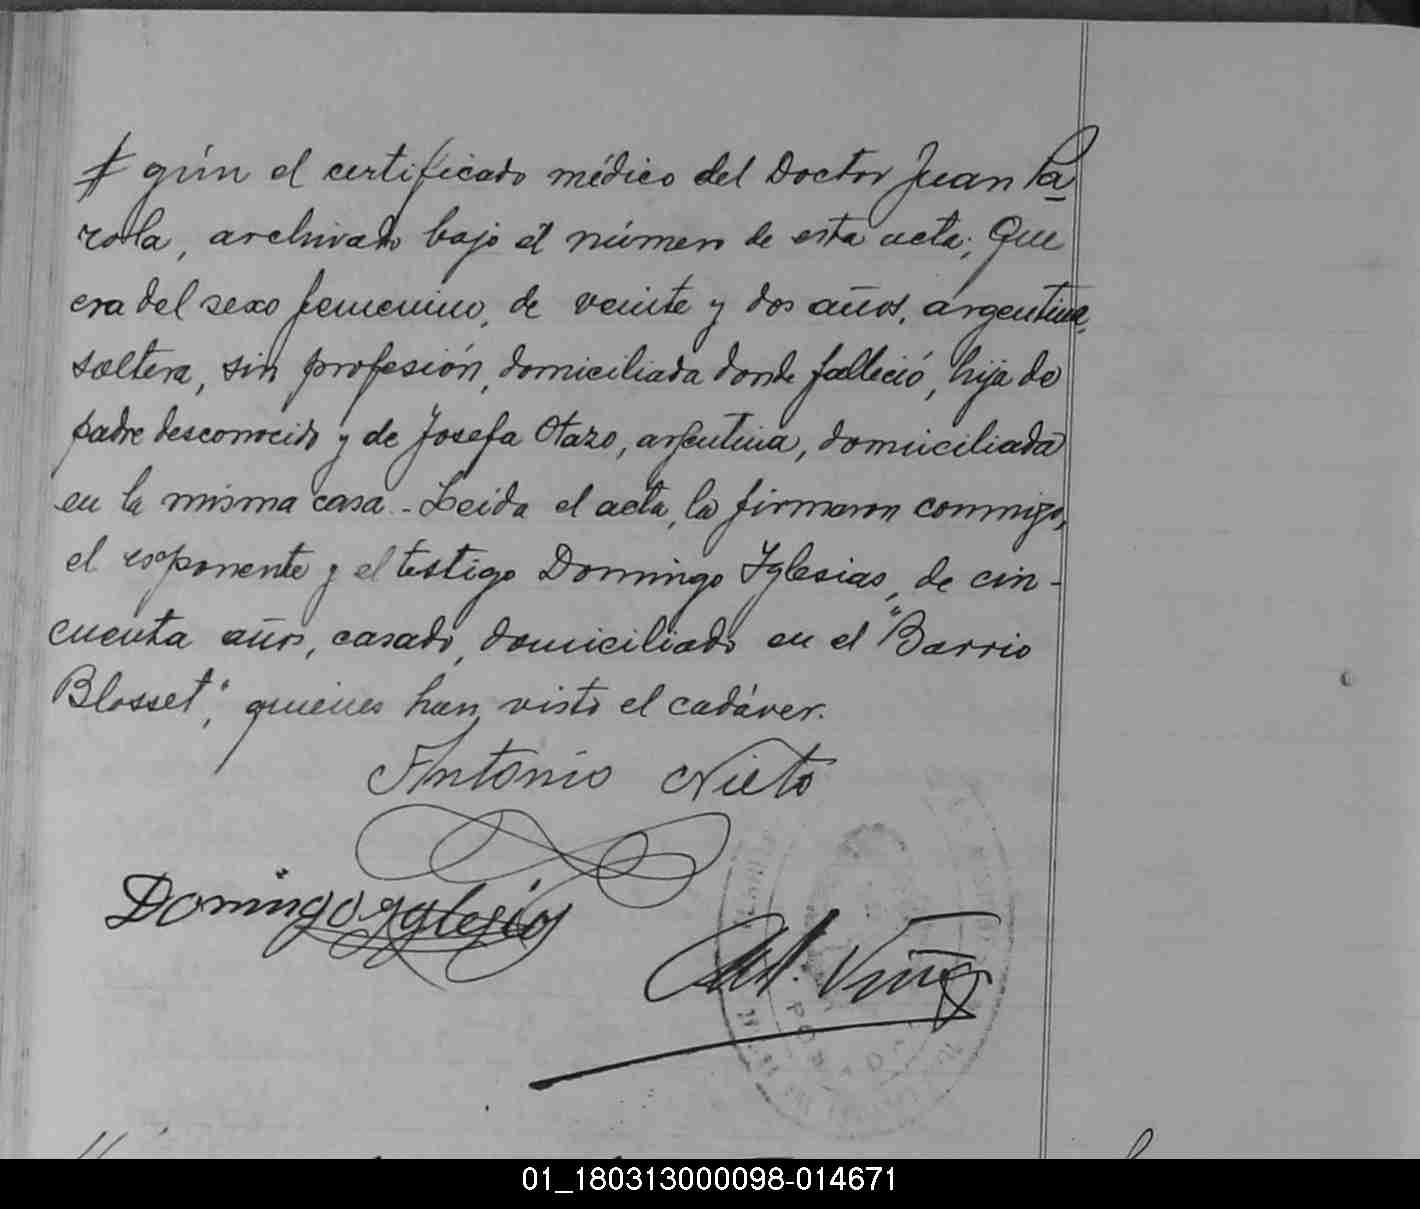 gún el certificado médico del Doctor Juan Pa
rola, archivado bajo el número de esta acta; Que
era del sexo femenino, de veinte y dos años, argentina,
soltera, sin profesión, domiciliada donde falleció, hija de
padre desconocido y de Josefa Otazo, argentina, domiciliada
en la misma casa.- Leida el acta, la firmaron conmigo,
el exponente y el testigo Domingo Yglesias, de cin-
cuenta años, casado, domiciliado en el "Barrio
Blosset", quienes han visto el cadáver.
Antonio Nieto
Domingo Yglesias
01_180313000098-014671